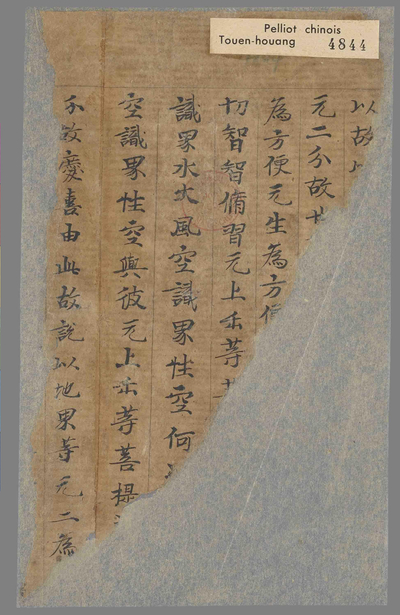 Pelliot chinois
Touen-houang 4844
以故
无二分故世
為方便无生為方便
切智智脩習无上正等
識界水火風空識界性空何
空識界性空與彼无上正等菩提
分故慶喜由此故說以地界等无二為